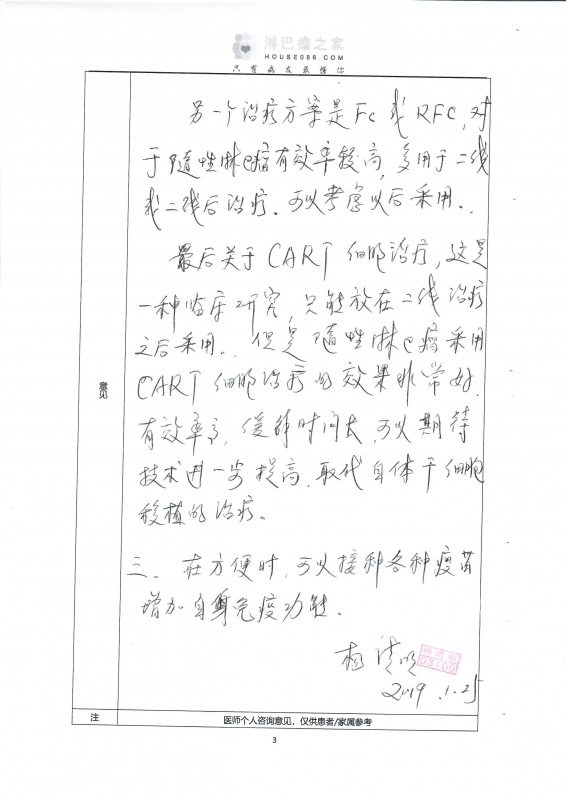 淋巴瘤之家
HOUSE086.COM
只有病友最懂你
另一个治疗方案是Fc或RFC,对
于随性淋巴瘤有效率较高,多用于二线
或二线后治疗。可以考虑以后采用。
最后关于CART细胞治疗,这是
一种临床研究,只能放在二线治疗
之后采用。但是随性淋巴瘤采用
CART细胞治疗的效果非常好,
有效率高,缓解时间长,可以期待
技术进一步提高,取代自体干细胞
移植的治疗。
三、在方便时,可以接种各种疫苗
增加自身免疫功能。
意见
03100
2019.1.25
注
医师个人咨询意见,仅供患者/家属参考
3